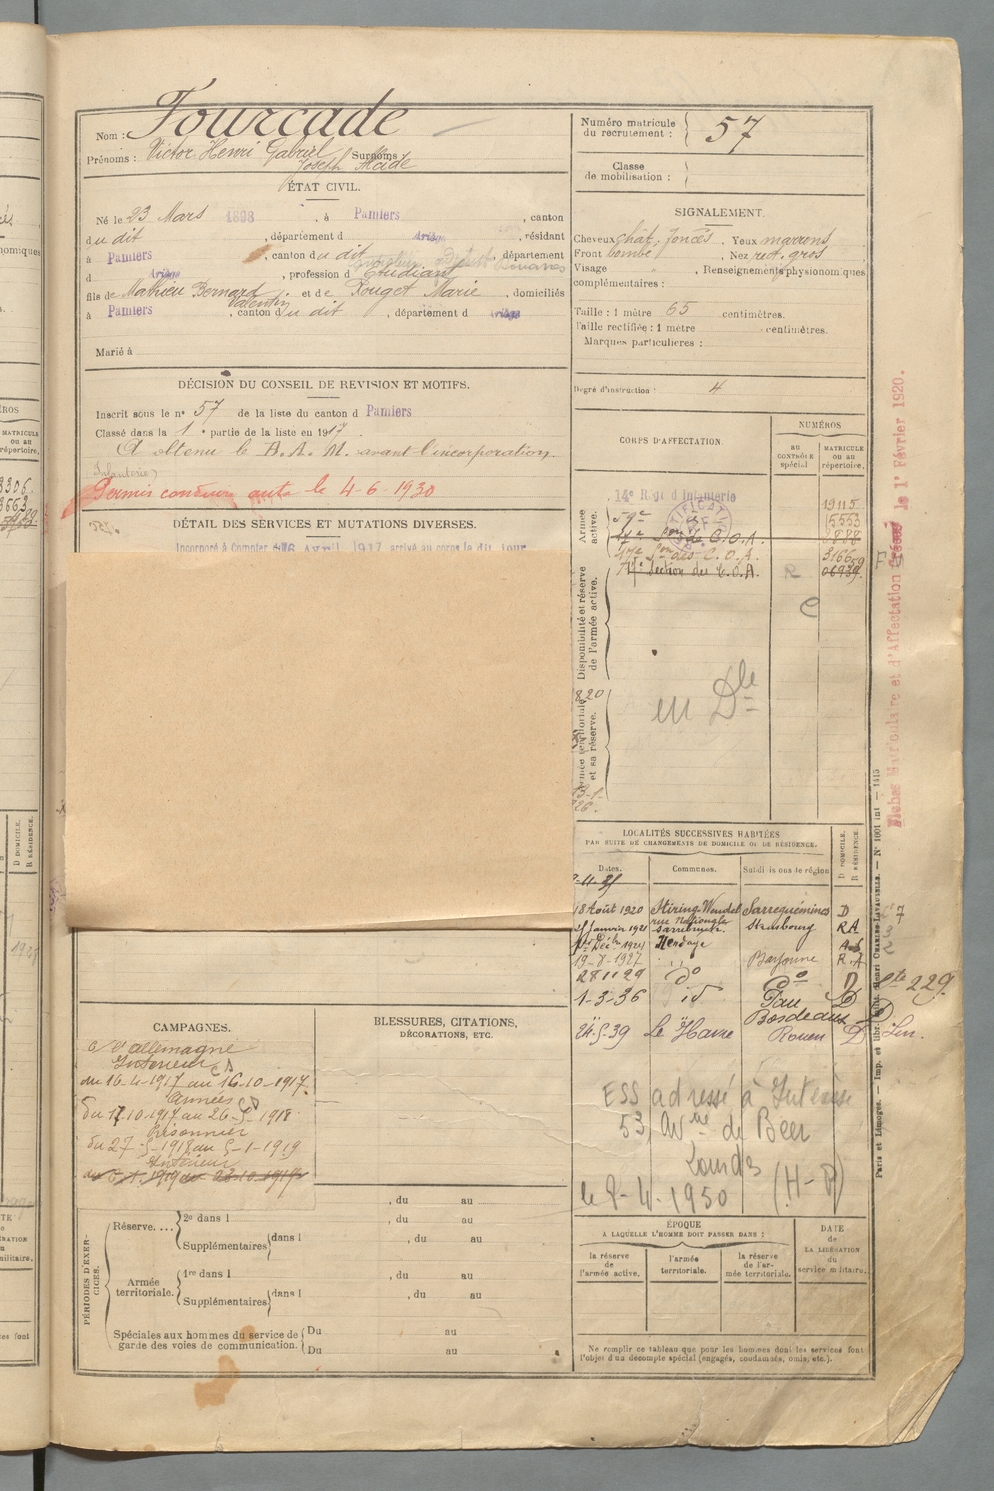 Nom : Fourcade
Prénoms : Victor Henri Gabriel Surnoms
Joseph
ÉTAT CIVIL.
Né le 23 Mars 1898, à Pamiers, canton
du dit, département d Ariège, résidant
à Pamiers, canton du dit, département
d Ariège, profession d étudiant Douanes
fils de Mathieu Bernard et de Rouget Marie, domiciliés
Valentin
à Pamiers, canton du dit, département d Ariège
Marié à
DÉCISION DU CONSEIL DE REVISION ET MOTIFS.
Inscrit sous le n° 57 de la liste du canton d Pamiers
Classé dans la 1e partie de la liste en 1917.
A obtenu le B. A. M. avant l'incorporation
(Infanterie)
Permis conduire auto le 4-6-1930
DÉTAIL DES SERVICES ET MUTATIONS DIVERSES.
Incorporé à Compter du 16 Avril 1917 arrivé au corps le dit jour
CAMPAGNES.
C/ l'allemagne
Intérieur CS
du 16-4-1917 au 16-10-1917
Armées CD
du 17-10-1917 au 26-5-1918
Prisonnier
du 27-5-1918 au 5-1-1919
Intérieur
BLESSURES, CITATIONS,
DÉCORATIONS, ETC.
PÉRIODES D'EXERCICES.
, du au
Réserve.... 2e dans l , du au
Supplémentaires dans l , du au
Armée territoriale. 1re dans l , du au
Supplémentaires dans l , du au
Spéciales aux hommes du service de garde des voies de communication. Du au
Du au
Numéro matricule du recrutement : 57
Classe de mobilisation :
SIGNALEMENT.
Cheveux chât. foncés, Yeux marrons
Front bombé, Nez rect. gros
Visage , Renseignements physionomiques
complémentaires :
Taille : 1 mètre 65 centimètres.
Taille rectifiée : 1 mètre centimètres.
Marques particulières :
Degré d'instruction : 4
CORPS D'AFFECTATION.
NUMÉROS
au CONTRÔLE spécial
MATRICULE ou au répertoire.
Armée active.
14e Régt d'Infanterie 19115
59e 5553
17e Son de C.O.A. 8888
17e Son des C.O.A.
Section des C.O.A. R 06939
C
Disponibilité et réserve de l'armée active.
en Dle
Armée territoriale et sa réserve.
Fiches Matriculaire et d'Affectation Créées le 1er Février 1920.
LOCALITÉS SUCCESSIVES HABITÉES
PAR SUITE DE CHANGEMENTS DE DOMICILE OU DE RÉSIDENCE.
Dates. Communes. Subdivisions de région D DOMICILE. R RÉSIDENCE.
18 Août 1920 Stiring-Wendel Sarreguemines D
rue Nationale
25 Janvier 1921 Strasbourg RA
1er Déc. 1924 Hendaye
19-8-1927 Bayonne R.A
28 11 29 do do D
1-3-36 id Pau D
Bordeaux
24-5-39 Le Havre Rouen D
Cte 229
ESS adressé à Intéressé
53, Avnue de Beer
Lourdes
le 8-4-1950 (H-P)
ÉPOQUE
A LAQUELLE L'HOMME DOIT PASSER DANS :
DATE de LA LIBÉRATION du service militaire.
la réserve de l'armée active.
l'armée territoriale.
la réserve de l'armée territoriale.
Ne remplir ce tableau que pour les hommes dont les services font
l'objet d'un décompte spécial (engagés, condamnés, omis, etc.).
Paris et Limoges. — Imp. et libr. milit. Henri CHARLES-LAVAUZELLE. — N° 1001 int — 1415